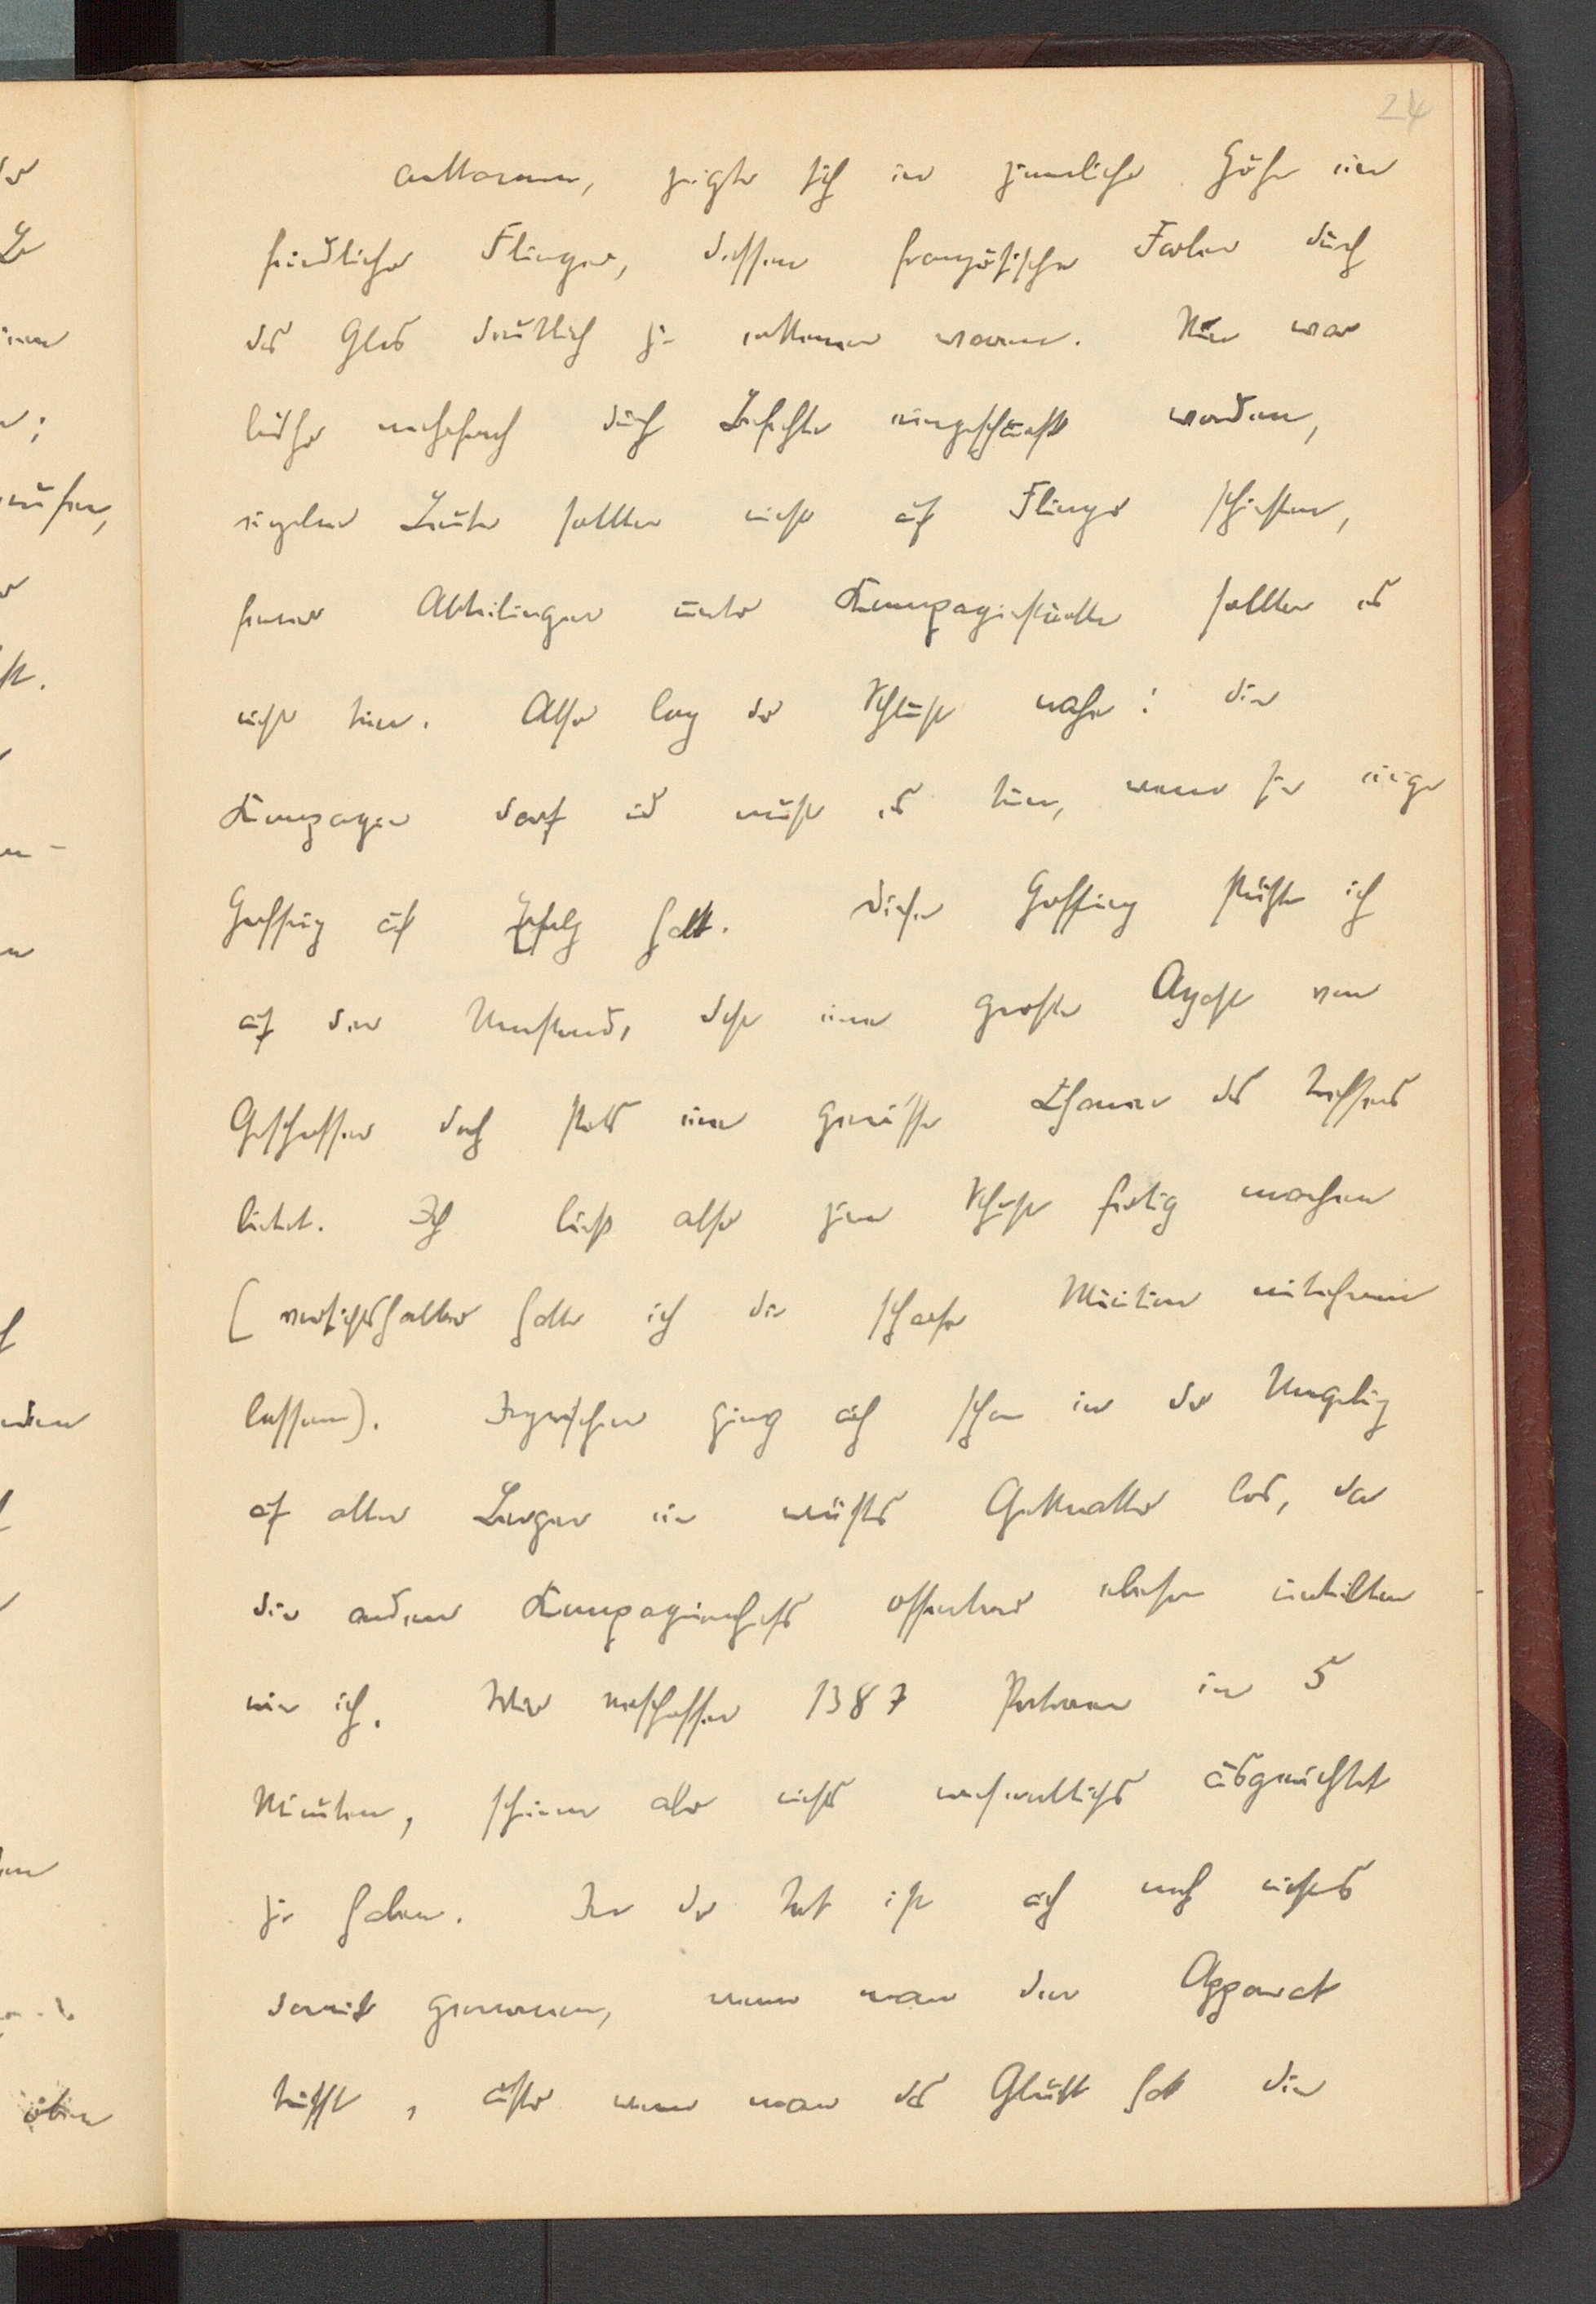 24
ankamen, zeigte sich in ziemlicher Höhe ein
feindlicher Flieger, dessen französische Farben durch
das Glas deutlich zu erkennen waren. Nun war
bisher mehrfach durch Befehle eingeschärft worden,
einzelne Leute sollten nicht auf Flieger schiessen,
ferner Abteilungen unter Kompagniestärke sollten es
nicht tun. Also lag der Schluss nahe: die
Kompagnie darf und muss es tun, wenn sie einige
Hoffnung auf Erfolg hat. Diese Hoffnung stützte ich
auf den Umstand, dass eine grosse Anzahl von
Geschossen doch stets eine gewisse Chance des Treffens
bietet. Ich liess also zum Schuss fertig machen
(vorsichtshalber hatte ich die scharfe Munition mitnehmen
lassen). Inzwischen ging auch schon in der Umgebung
auf allen Lagern ein wüstes Geknatter los, da
die anderen Kompagniechefs offenbar ebenso urteilten
wie ich. Wir verschossen 1387 Patronen in 5
Minuten, schienen aber nichts wesentliches ausgerichtet
zu haben. In der Tat ist auch noch nichts
damit gewonnen, wenn man den Apparat
trifft, ausser wenn man das Glück hat die